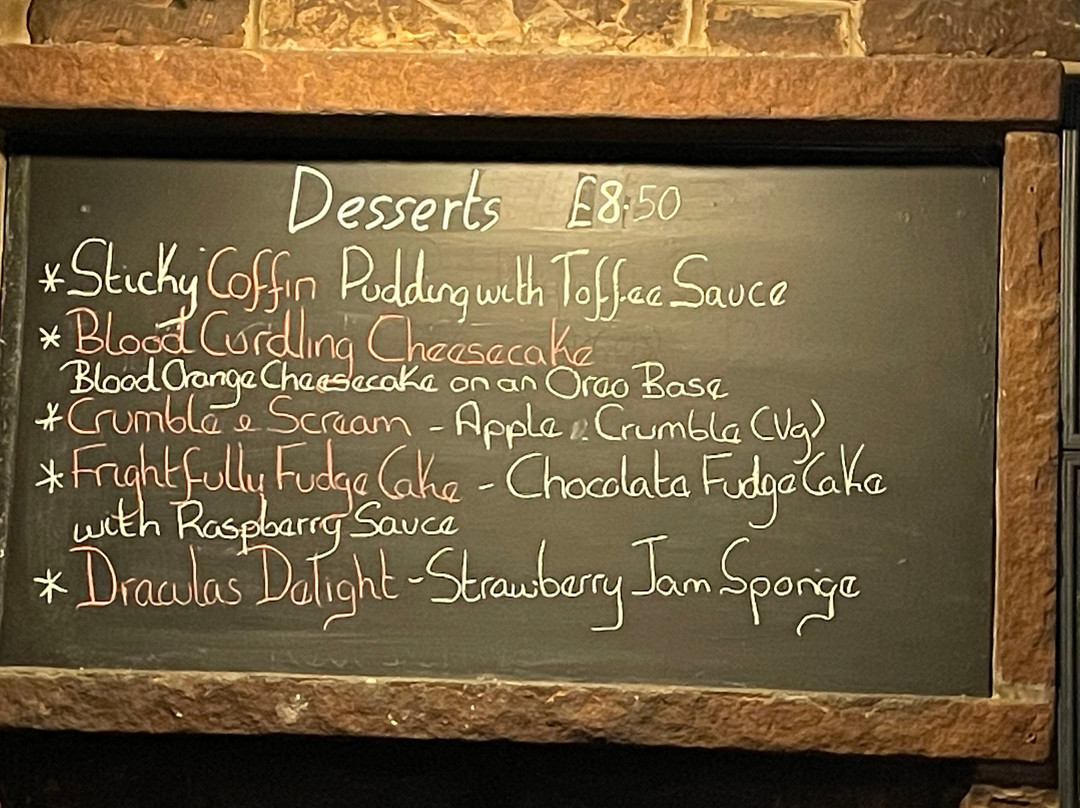 Desserts £8.50
* Sticky Coffin Pudding with Toffee Sauce
* Blood Curdling Cheesecake
Blood Orange Cheesecake on an Oreo Base
* Crumble e Scream - Apple Crumble (Vg)
* Frightfully Fudge Cake - Chocolate Fudge Cake
with Raspberry Sauce
* Draculas Delight - Strawberry Jam Sponge